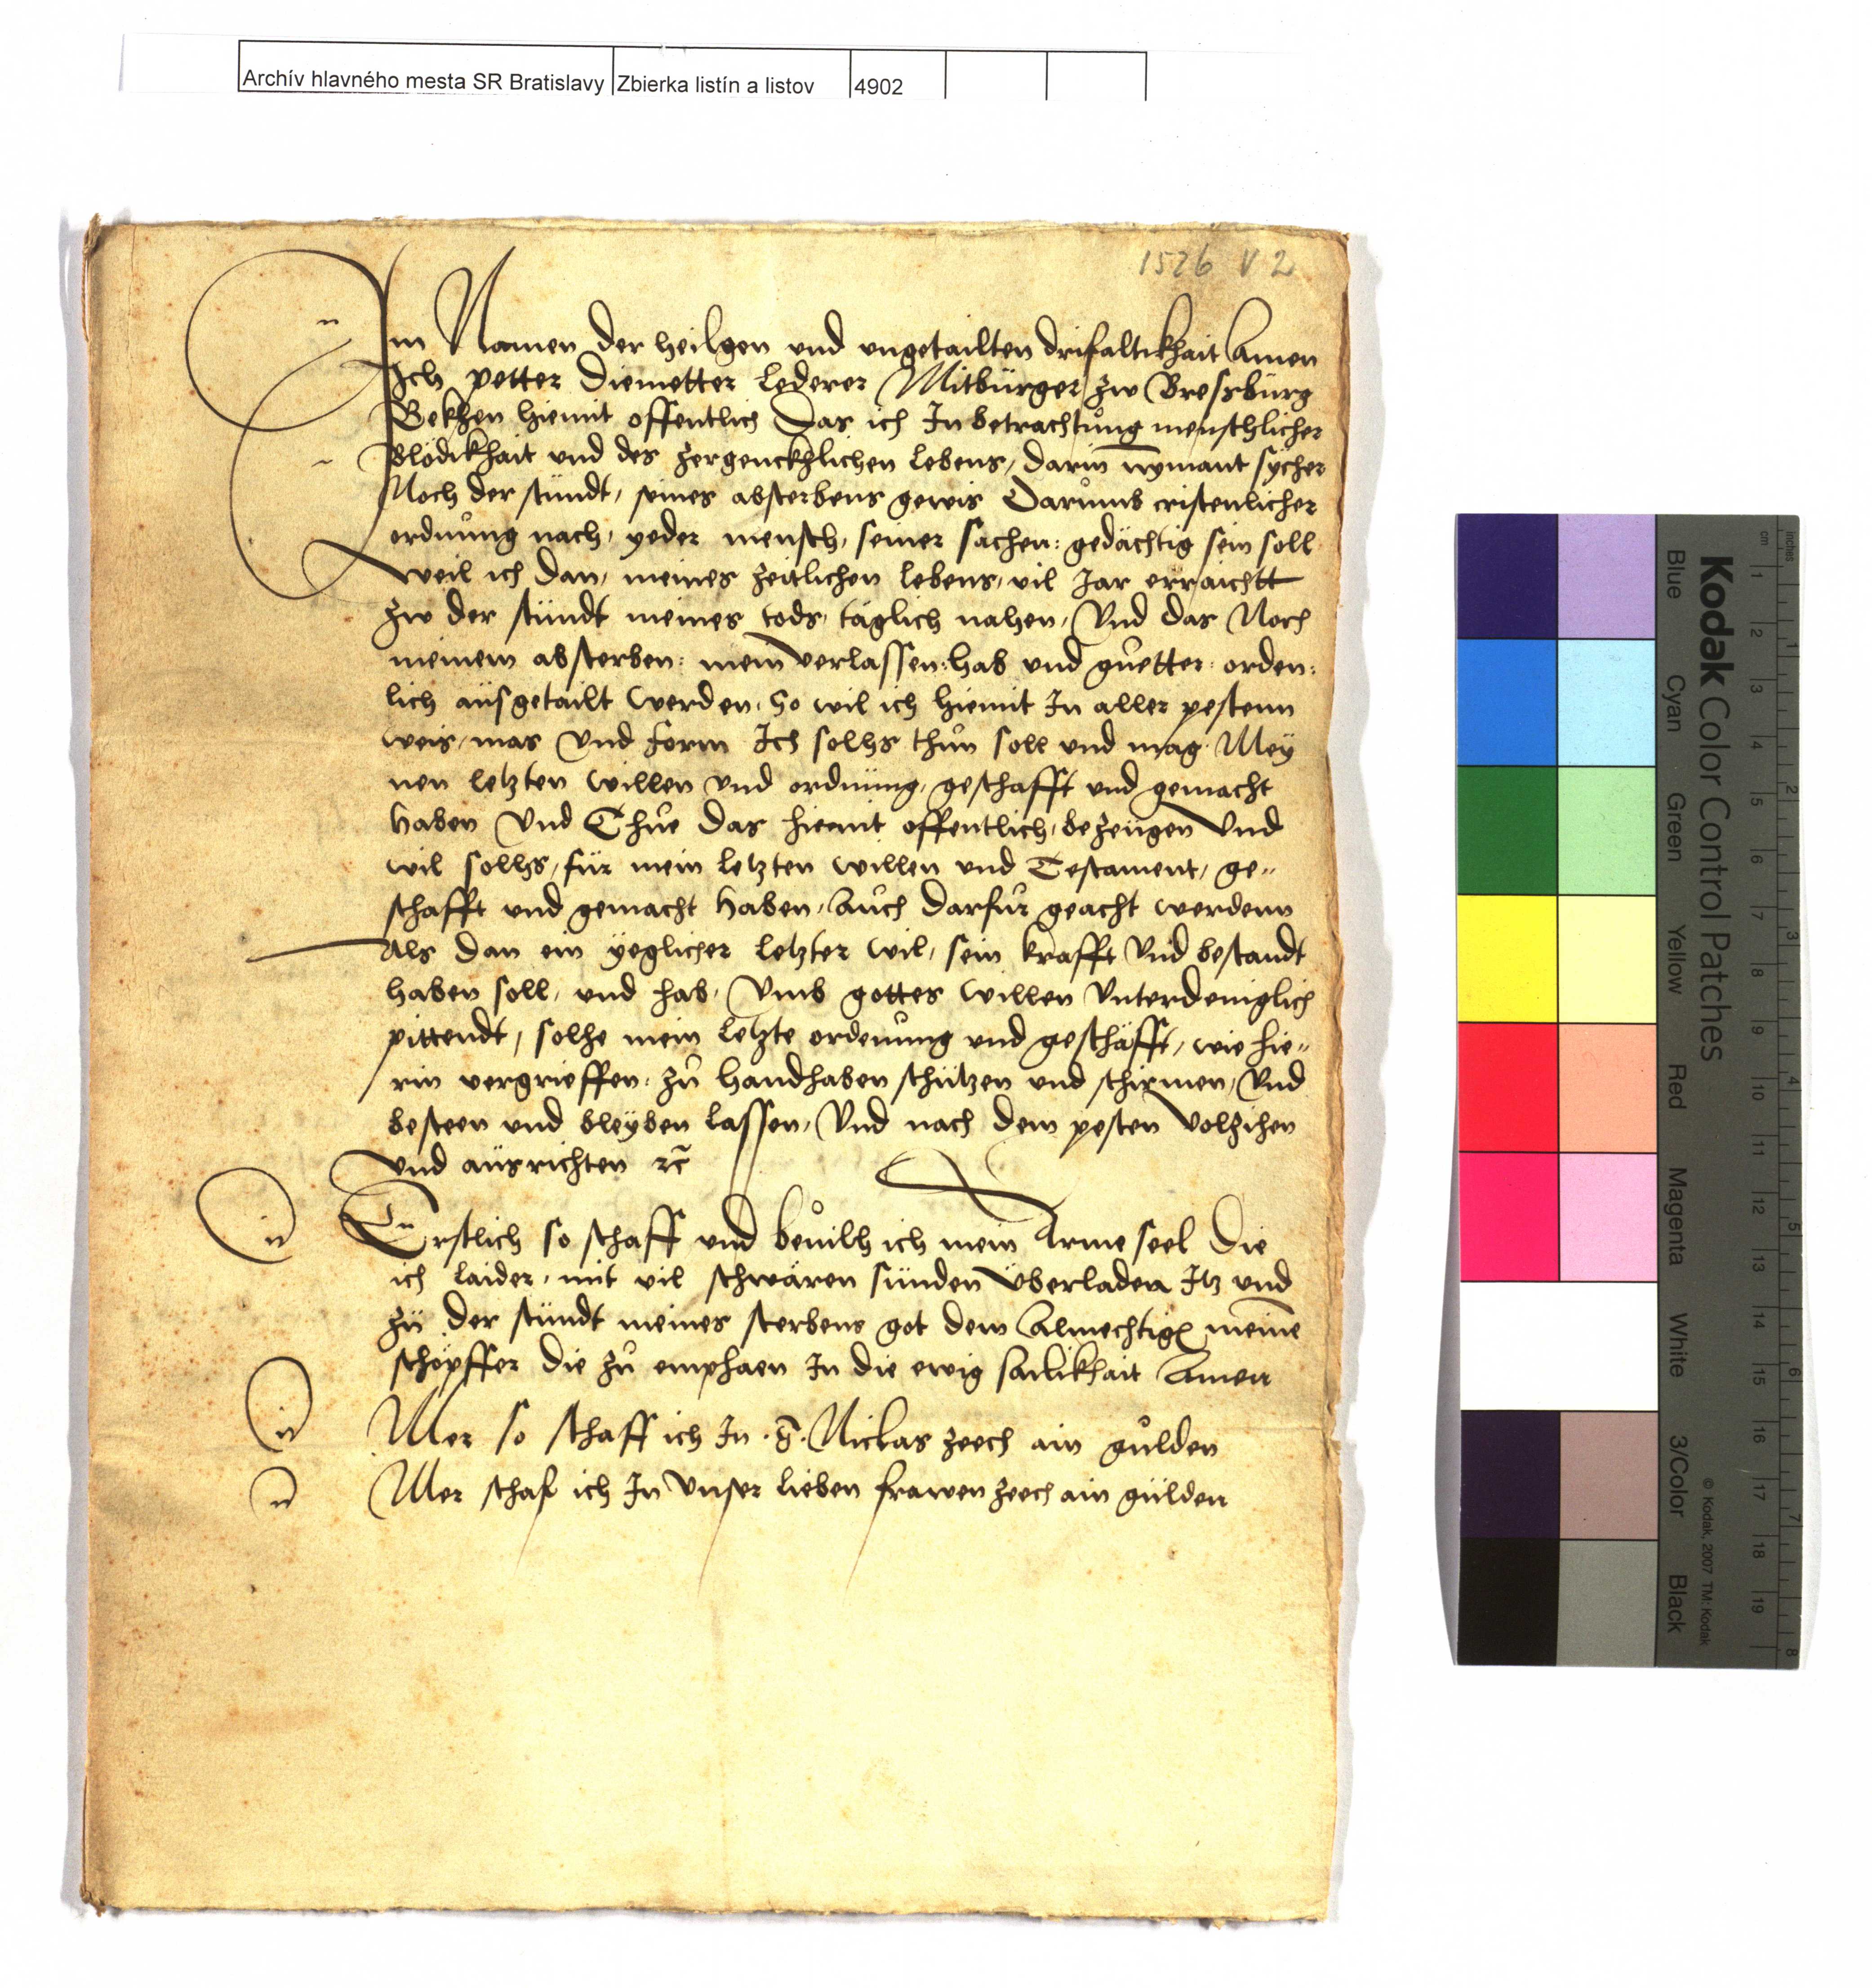 Archív hlavného mesta SR Bratislavy Zbierka listín a listov 4902
1526 V 2
Im Namen der heilgen vnd vngetailten drifaltikhait Amen
Ich petter Diemetter lederer Mitbürger zw Bresburg
Bekhen hiemit offentlich Das ich In betrachtůng menschlicher
Blödikhait vnd des zergenckhlichen lebens, darin̅ nymant sycher
Noch der stündt, seines absterbens gewis Darůmb cristenlicher
ordnůng nach, yeder mensch, seiner sachen: gedächtig sein soll
weil ich dan, meines zeitlichen lebens, vil Jar erraichtt
zw der stündt meines tods, täglich nahen, Vnd das Noch
meinem absterben: mein verlassen: hab vnd gůetter: orden:
lich aüsgetailt werden, So wil ich hiemit In aller pestenn
weis, mas Vnd form Ich solhs thůn soll vnd mag Mey
nen letzten willen vnd ordnüng, geschafft vnd gemacht
haben Vnd Thůe das hiemit offentlich, bezeügen Vnd
wil sollhs, für mein letzten willen vnd Testament, ge"
schafft vnd gemacht haben, Aůch darfůr geacht werdenn
Als dan ein yeglicher letzter wil, sein krafft Vnd bestandt
haben soll, vnd hab, Vmb gottes willen Vnterdeniglich
pittendt, solhe mein letzte ordenůng vnd geschäfft, wie hie"
rin vergrieffen, zů handhaben schützen vnd schirmen, Vnd
besteen vnd bleyben lassen, Vnd nach dem pesten Volzihen
Vnd aüsrichten ꝛc̃
Erstlich so schaff vnd beuilh ich mein Arme seel Die
ich laider, mit vil schwären sünden Überladen Itz vnd
zü der stündt meines sterbens got dem Almechtigen meine̅
schöpffer die zů emphaen In die ewig sailikhait Amen
Mer so schaff ich In .S. Niclas zeech ain gůlden
Mer schaf ich In Vnser lieben frawen zeech ain gülden
Kodak Color Control Patches
Blue Cyan Green Yellow Red Magenta White 3/Color Black
© Kodak, 2007 TM: Kodak
inches 1 2 3 4 5 6 7 8
cm 1 2 3 4 5 6 7 8 9 10 11 12 13 14 15 16 17 18 19